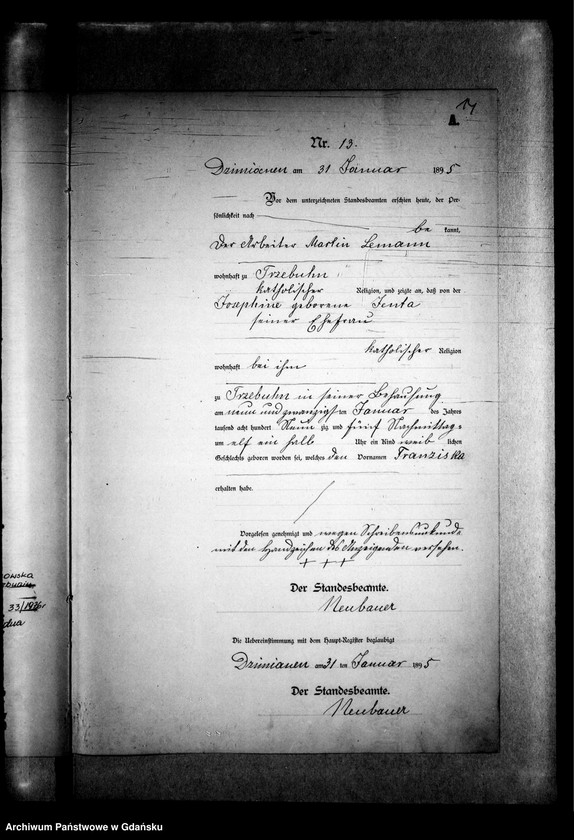 14
A.
Nr. 13.
Dzimianen am 31 Januar 1895
Vor dem unterzeichneten Standesbeamten erschien heute, der Per-
sönlichkeit nach
be kannt,
der Arbeiter Martin Lemann
wohnhaft zu Trzebuhn
katholischer Religion, und zeigte an, daß von der
Josephine geborene Jenta
seiner Ehefrau
katholischer Religion
wohnhaft bei ihm
zu Trzebuhn in seiner Behausung
am neun und zwanzigsten Januar des Jahres
tausend acht hundert Neun zig und fünf Nachmittags
um elf ein halb Uhr ein Kind weib lichen
Geschlechts geboren worden sei, welches den Vornamen Franziska
erhalten habe.
Vorgelesen genehmigt und wegen Schreibensunkunde
mit den Handzeichen des Anzeigenden versehen.
+ + +
Der Standesbeamte.
Neubauer
Die Uebereinstimmung mit dem Haupt-Register beglaubigt
Dzimianen am 31 ten Januar 1895
Der Standesbeamte.
Neubauer
OWSKA
33/1976r
Archiwum Państwowe w Gdańsku